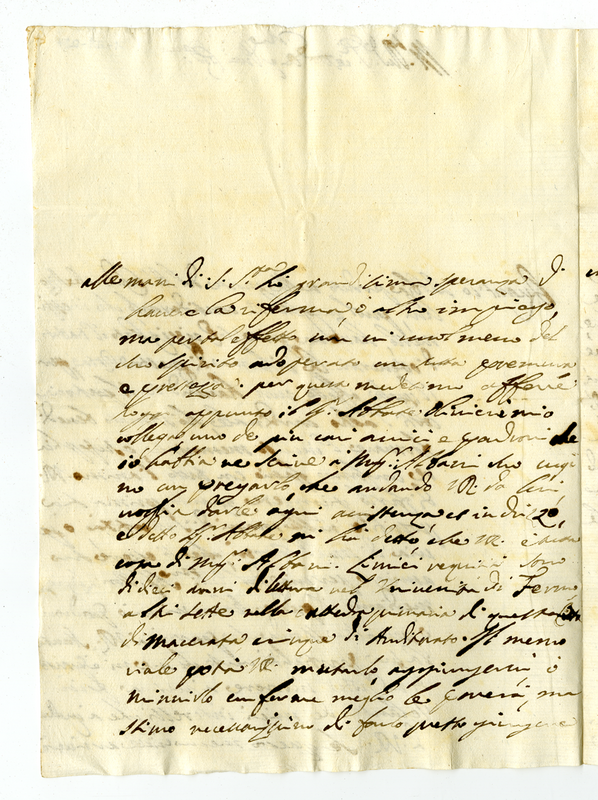 alle mani di S. S.tà hò grandissima speranza di
havere la rifferma ò altro impiego,
ma per tal effetto non ci vuol meno del
suo spirito adoperato con tutta premura
e prestezza. per questo medesimo affare
hoggi appunto il Sig. Abbate Olivieri mio
collega uno de più cari amici e padroni che
io habbia ne scrive à Mg. Albani suo cugi
no con pregarlo, che andando VR da lui
voglia darle ogni assistenza et indrizzo,
e detto Sig. Abbate mi hà detto che VR è
cosa di Mg. Albani. I miei requisiti sono
di dieci anni di lettura nel Università di Fermo
altri sette nella cattedra primaria di questa
di Macerata cinque di Auditorato. Il memo
riale potrà VR. mutarlo aggiungervi ò
minuirlo conforme meglio le parerà, ma
stimo necessarissimo di farlo presto giungere